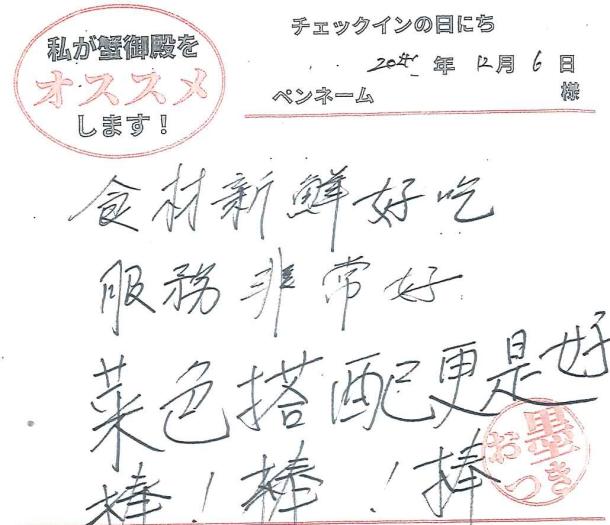 私が蟹御殿を
オススメ
します!
チェックインの日にち
年 12月 6日
ペンネーム 様
食材新鮮好吃
服務非常好
菜色搭配更是好
棒!棒!棒
お墨つき